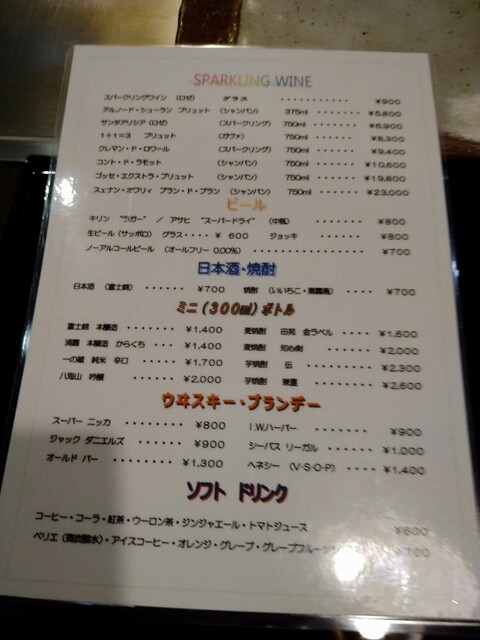 SPARKLING WINE
スパークリングワイン （ロゼ） グラス ・・・・・・・・・・・・ ¥900
アルノード・シューラン ブリュット （シャンパン） 375ml ・・・・・・・ ¥5,800
サンタアリシア（ロゼ） （スパークリング） 750ml ・・・・・・・ ¥6,900
1+1=3 ブリュット （カヴァ） 750ml ・・・・・・・ ¥8,300
クレマン・ド・ロワール （スパークリング） 750ml ・・・・・・・ ¥9,400
コント・ド・ラモット （シャンパン） 750ml ・・・・・・・ ¥10,600
ゴッセ・エクストラ・ブリュット （シャンパン） 750ml ・・・・・・・ ¥19,800
スェナン・オワリィ ブラン・ド・ブラン （シャンパン） 750ml ・・・・・・ ¥23,000
ビール
キリン “ラガー” ／ アサヒ “スーパードライ” （中瓶） ・・・・・・ ¥800
生ビール（サッポロ） グラス・・・・ ¥ 600 ジョッキ ・・・・・・ ¥800
ノーアルコールビール （オールフリー 0.00%） ・・・・・・・・・・・・・・・・ ¥700
日本酒・焼酎
日本酒 （富士錦） ・・・・・・ ¥700 焼酎 （いいちこ・黒霧島） ・・・・ ¥700
ミニ（300ml）ボトル
富士錦 本醸造 ・・・・・・・ ¥1,400 麦焼酎 田苑 金ラベル ・・・・ ¥1,600
浦霞 本醸造 からくち ・・・ ¥1,400 麦焼酎 知心剣 ・・・・・・ ¥2,000
一の蔵 純米 辛口 ・・・・・ ¥1,700 芋焼酎 伝 ・・・・・・・・ ¥2,300
八海山 吟醸 ・・・・・・・・ ¥2,000 芋焼酎 兼重 ・・・・・・・ ¥2,600
ウヰスキー・ブランデー
スーパー ニッカ ・・・・・・・・ ¥800 I.W.ハーパー ・・・・・・・・ ¥900
ジャック ダニエルズ ・・・・・・ ¥900 シーバス リーガル ・・・・・ ¥1,000
オールド パー ・・・・・・・・ ¥1,300 ヘネシー （V・S・O・P） ・・・・ ¥1,400
ソフト ドリンク
コーヒー・コーラ・紅茶・ウーロン茶・ジンジャエール・トマトジュース ¥600
ペリエ（微炭酸水）・アイスコーヒー・オレンジ・グレープ・グレープフルーツ ¥700